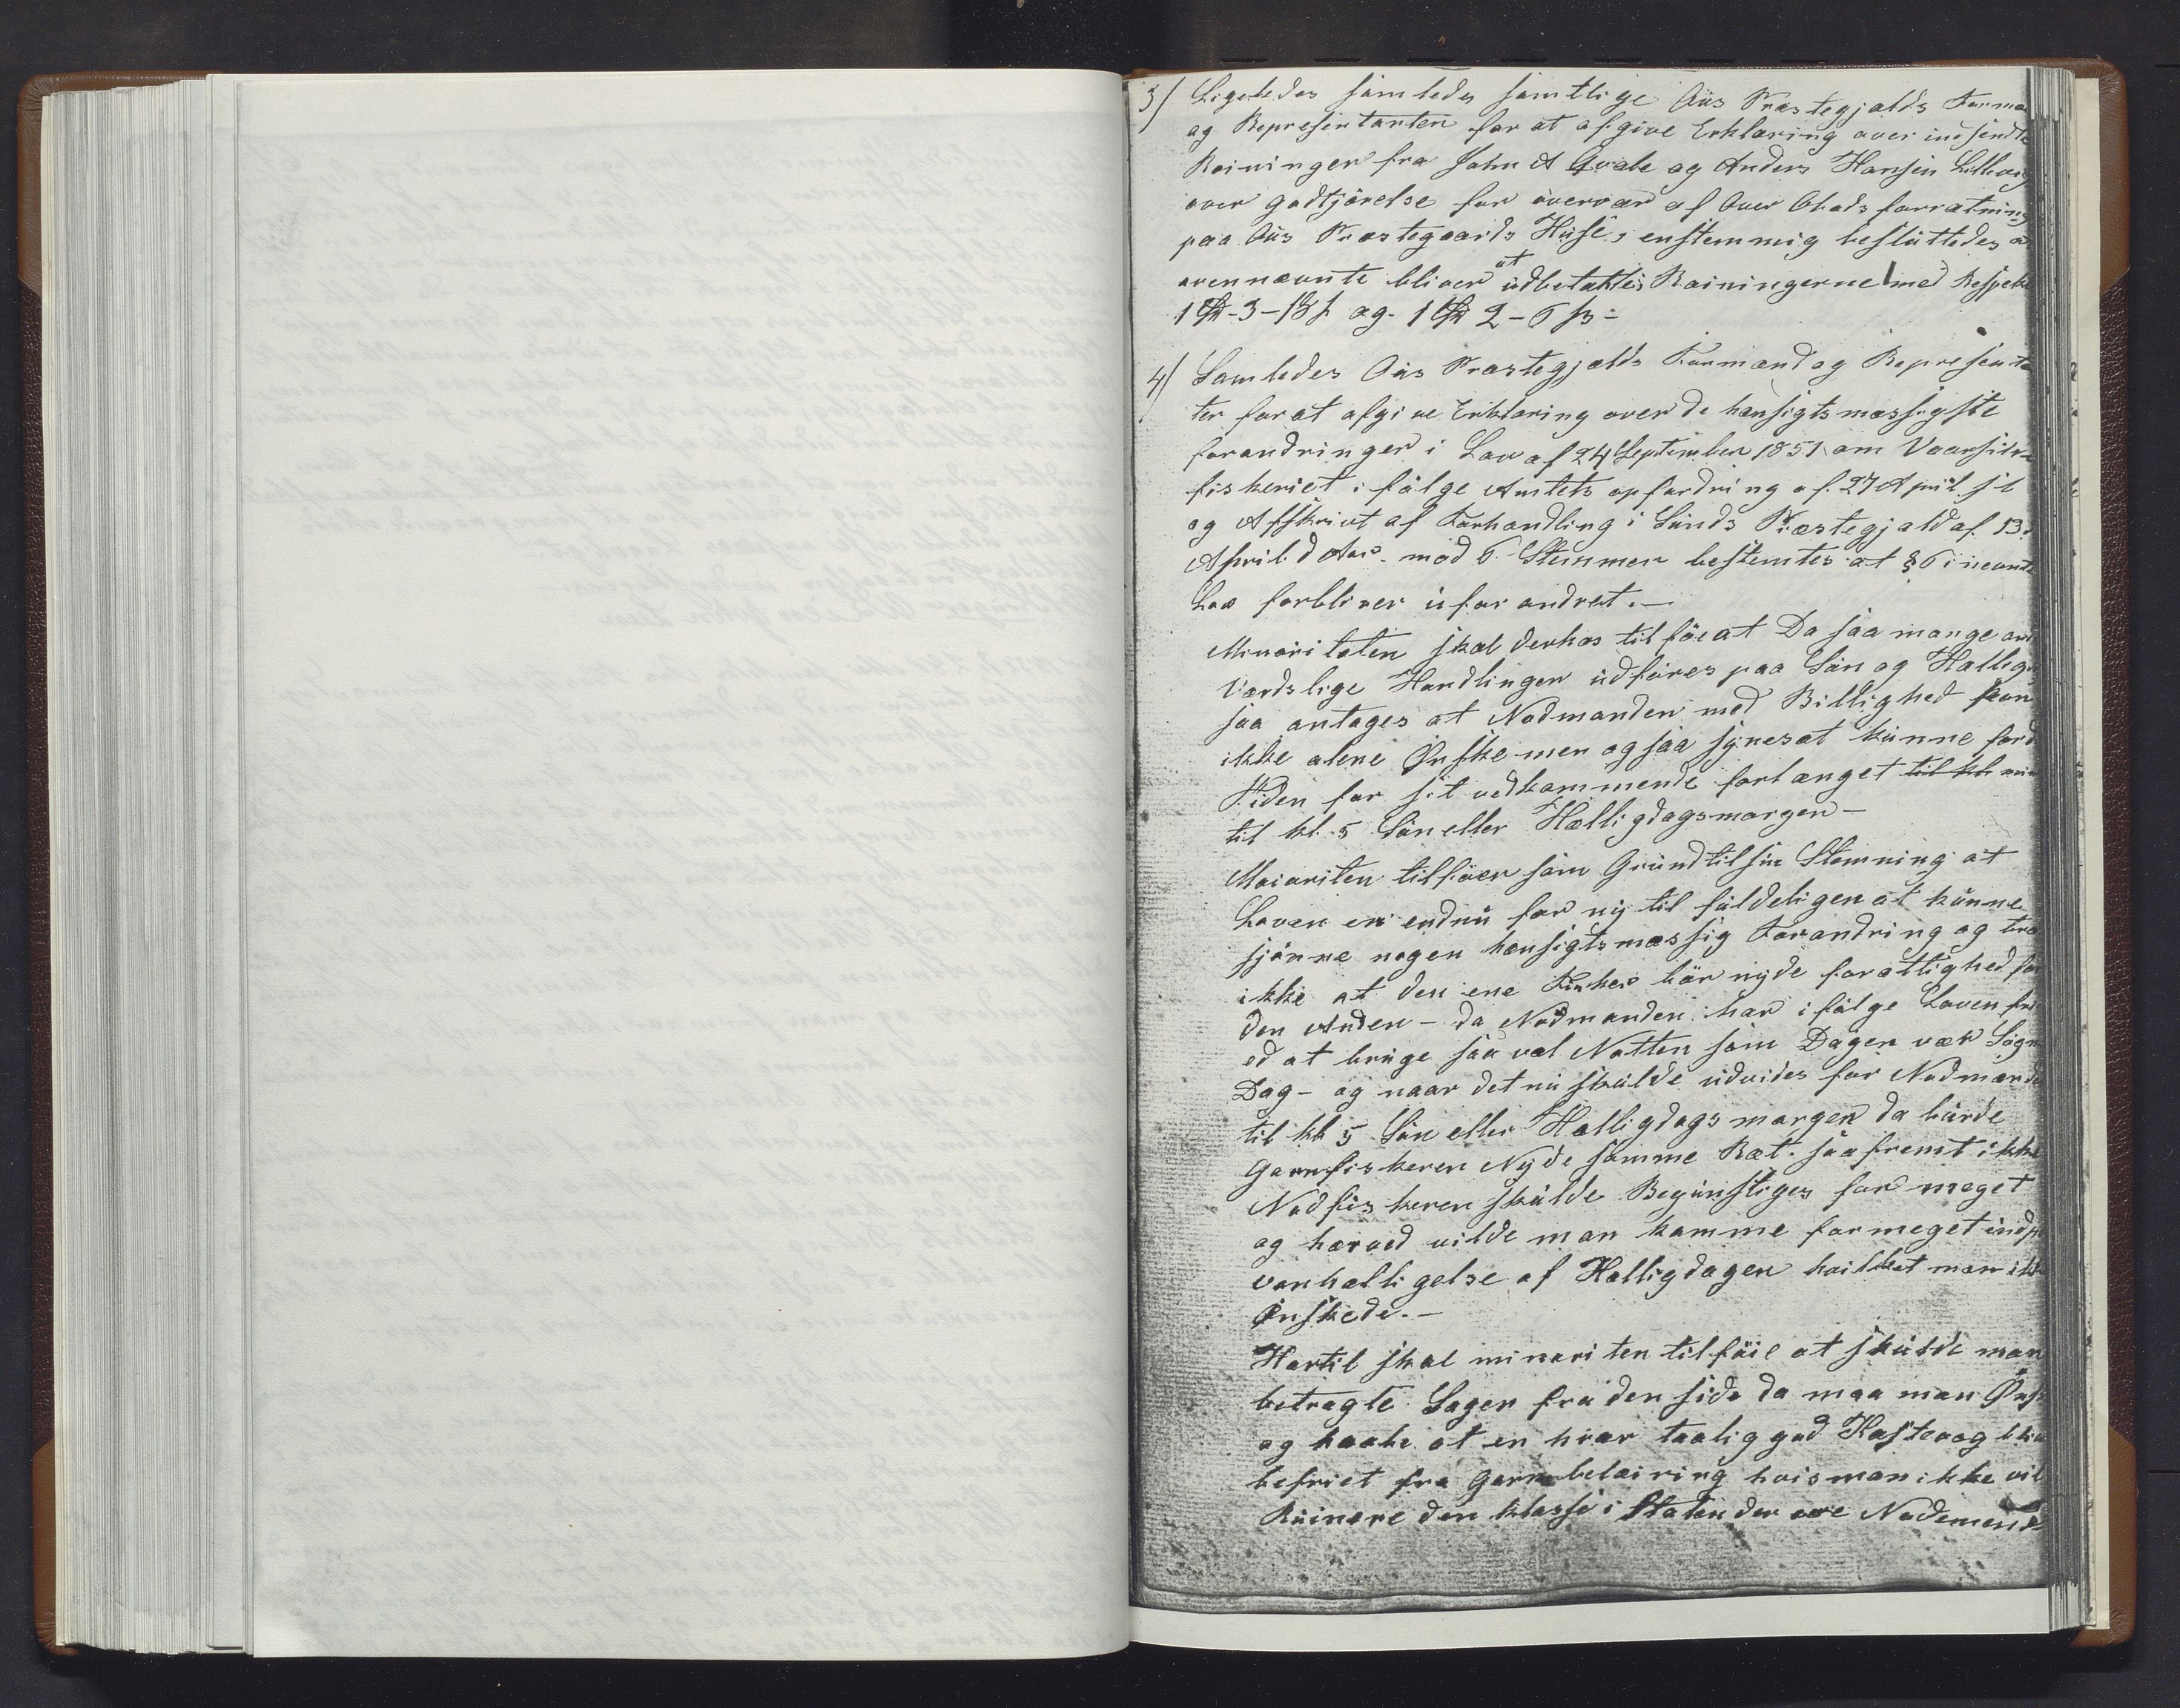 3/ Ligeledes samledes samtlige Ous Præstegjælds Forma
og Representanten for at afgive Erklæring over indsendte
Reininger fra John A Qvale og Anders Hansen
over godtjörelse for övervær af Over Abods forrætning
paa Ous Præstegaards Huse, enstemmig besluttedes a
ovennævnte bliver at udbetahles Reiningerne med Respekt
1 Spd - 3 - 18 s. og. 1 Spd 2 - 6 s =
4/ Samledes Ous Præstegjælds Formænd og Represente
ter for at afgive Erklæring over de hensigtsmæssigste
forandringer i Lov af 24 September 1851 om Vaarsilde
fiskeriet i fölge Amtets opfordring af 27 April sl
og Afskrivt af Forhandling i Sunds Præstegjæld af 13.
April d Aar. mod 6 Stemmer bestemtes at § 6 i nevnte
Lov forbliver uforandret. —
Minoriteten skal derhos tilföie at Da saa mange and
Værdslige Handlinger udföres paa Sön og Hellig
saa antages at Nodmanden med Billighed kan
ikke alene Ønske men ogsaa synes at kunne ford
Tiden for sit vedkommende forlænget til kl
til kl. 5 Sön eller Helligdagsmorgen —
Maioriten tilföier som Grund til sin Stemning at
Loven er endnu for ny til fuldeligen at kunne
sjönne nogen hensigtsmæssig Forandring og tro
ikke at den ene Fisker bör nyde forettighed for
den Anden - da Nodmanden har i fölge Loven fri
ed at bruge saa vel Natten som Dagen vær Sögne
Dag - og naar det nu skulde udvides for Nodmænde
til kl 5 Sön eller Helligdags morgen da burde
Garnfiskeren Nyde samme Ræt. saafremt ikke
Nodfiskeren skulde Begunstiges for meget
og herved vilde man komme formeget ind p
vanhelligelse af Helligdagen hvilket man ikke
Ønskede. —
Hertil skal minoriten tilföie at skulde man
betragte Sagen fra den side da maa man Ønsk
og haabe at en hvær taalig god Kastevog bliv
befriet fra Garnbelæiring hvis man ikke vil
Ruinere den klasse i Staten der ere Nodemend